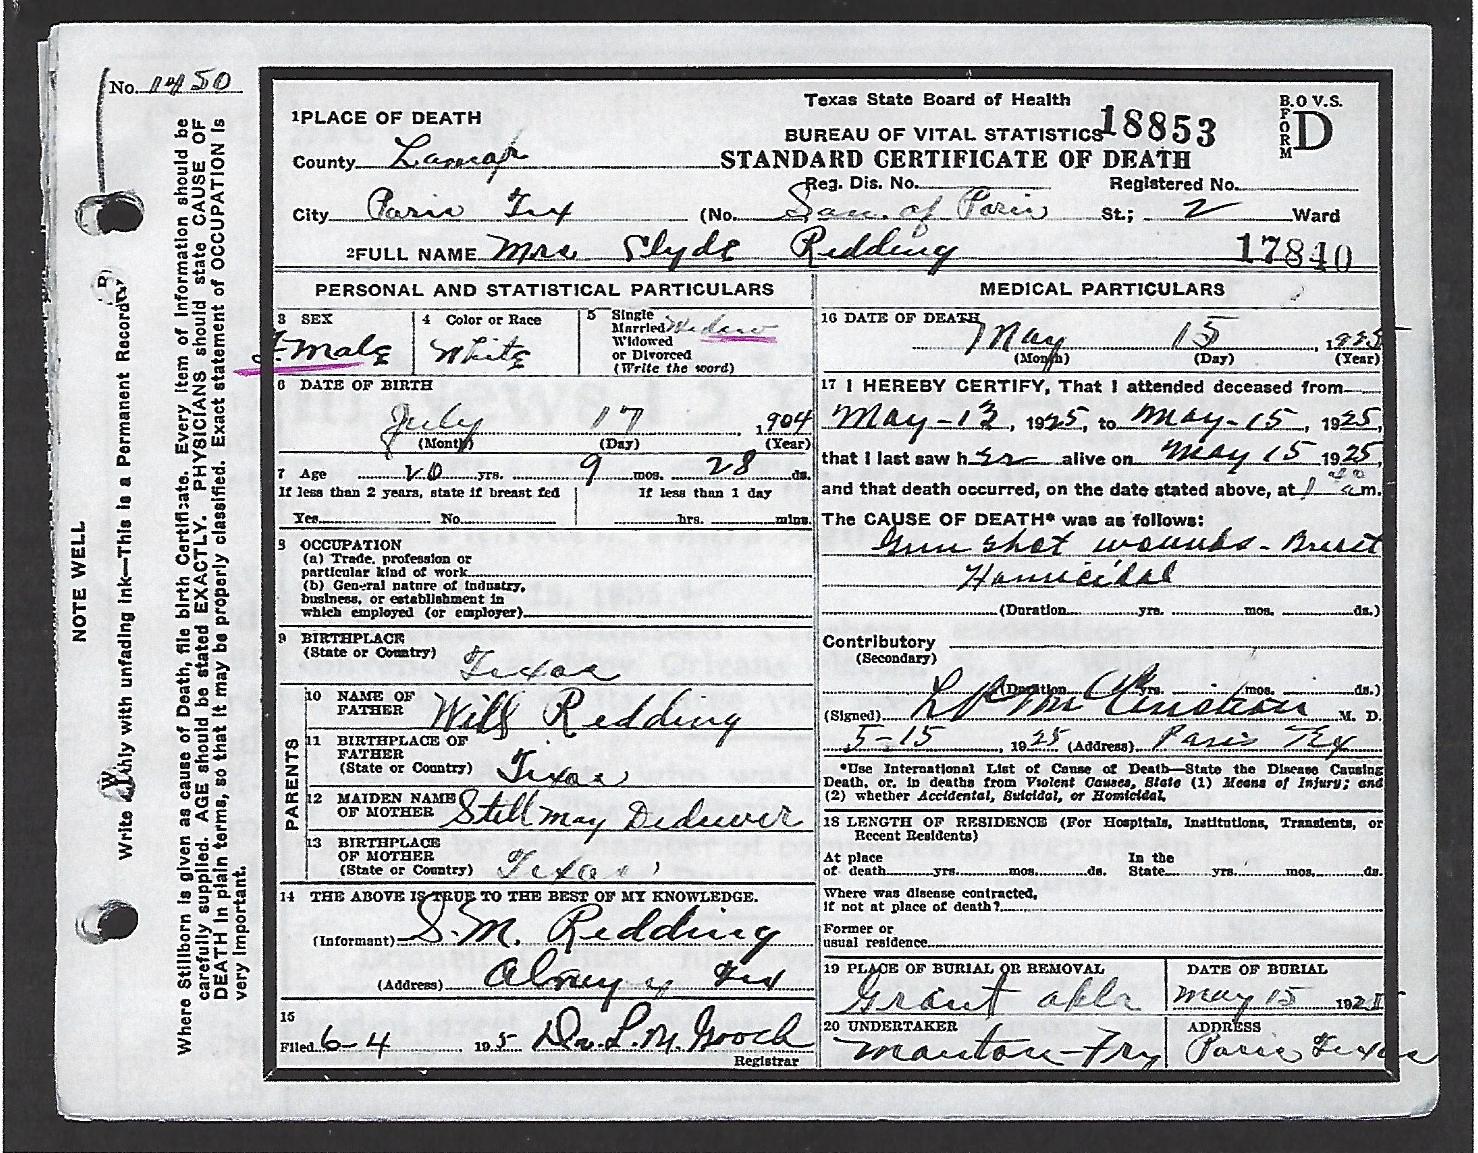 No. 1450
NOTE WELL
Write Only with unfading ink—This is a Permanent Record
Where Stillborn is given as cause of Death, file birth Certificate. Every item of Information should be
carefully supplied. AGE should be stated EXACTLY. PHYSICIANS should state CAUSE OF
DEATH in plain terms, so that it may be properly classified. Exact statement of OCCUPATION is
very important.
Texas State Board of Health
BUREAU OF VITAL STATISTICS
18853
STANDARD CERTIFICATE OF DEATH
B.O V.S.
FORM D
1 PLACE OF DEATH
County Lamar
Reg. Dis. No. Registered No.
City Paris Tex (No. San. of Paris St.; 2 Ward
2 FULL NAME Mrs Clyde Redding
17840
PERSONAL AND STATISTICAL PARTICULARS
3 SEX
Female
4 Color or Race
White
5 Single
Married
Widowed
or Divorced
(Write the word)
Widow
6 DATE OF BIRTH
July 17, 1904
(Month) (Day) (Year)
7 Age 20 yrs. 9 mos. 28 ds.
If less than 2 years, state if breast fed
Yes No.
If less than 1 day
hrs. mins.
8 OCCUPATION
(a) Trade, profession or
particular kind of work
(b) General nature of industry,
business, or establishment in
which employed (or employer)
9 BIRTHPLACE
(State or Country) Texas
PARENTS
10 NAME OF
FATHER Will Redding
11 BIRTHPLACE OF
FATHER
(State or Country) Texas
12 MAIDEN NAME
OF MOTHER May
13 BIRTHPLACE
OF MOTHER
(State or Country) Texas
14 THE ABOVE IS TRUE TO THE BEST OF MY KNOWLEDGE.
(Informant) S. M. Redding
(Address) Tex
15
Filed 6-4 1925 Dr. L. M. Gooch
Registrar
MEDICAL PARTICULARS
16 DATE OF DEATH
May 15, 1925
(Month) (Day) (Year)
17 I HEREBY CERTIFY, That I attended deceased from
May-13, 1925, to May-15, 1925,
that I last saw her alive on May 15 1925,
and that death occurred, on the date stated above, at 1 am.
The CAUSE OF DEATH* was as follows:
Gun shot wounds - Breast
Homicidal
(Duration yrs. mos. ds.)
Contributory
(Secondary)
(Duration yrs. mos. ds.)
(Signed) M. D.
5-15, 1925 (Address) Paris Tex
*Use International List of Cause of Death—State the Disease Causing
Death, or, in deaths from Violent Causes, State (1) Means of Injury; and
(2) whether Accidental, Suicidal, or Homicidal.
18 LENGTH OF RESIDENCE (For Hospitals, Institutions, Transients, or
Recent Residents)
At place
of death yrs. mos. ds.
In the
State yrs. mos. ds.
Where was disease contracted,
if not at place of death?
Former or
usual residence
19 PLACE OF BURIAL OR REMOVAL
Grant Okla
DATE OF BURIAL
May 15 1925
20 UNDERTAKER
Manton-Fry
ADDRESS
Paris Texas